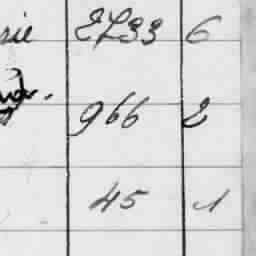 rie 2733 6
966 2
45 1